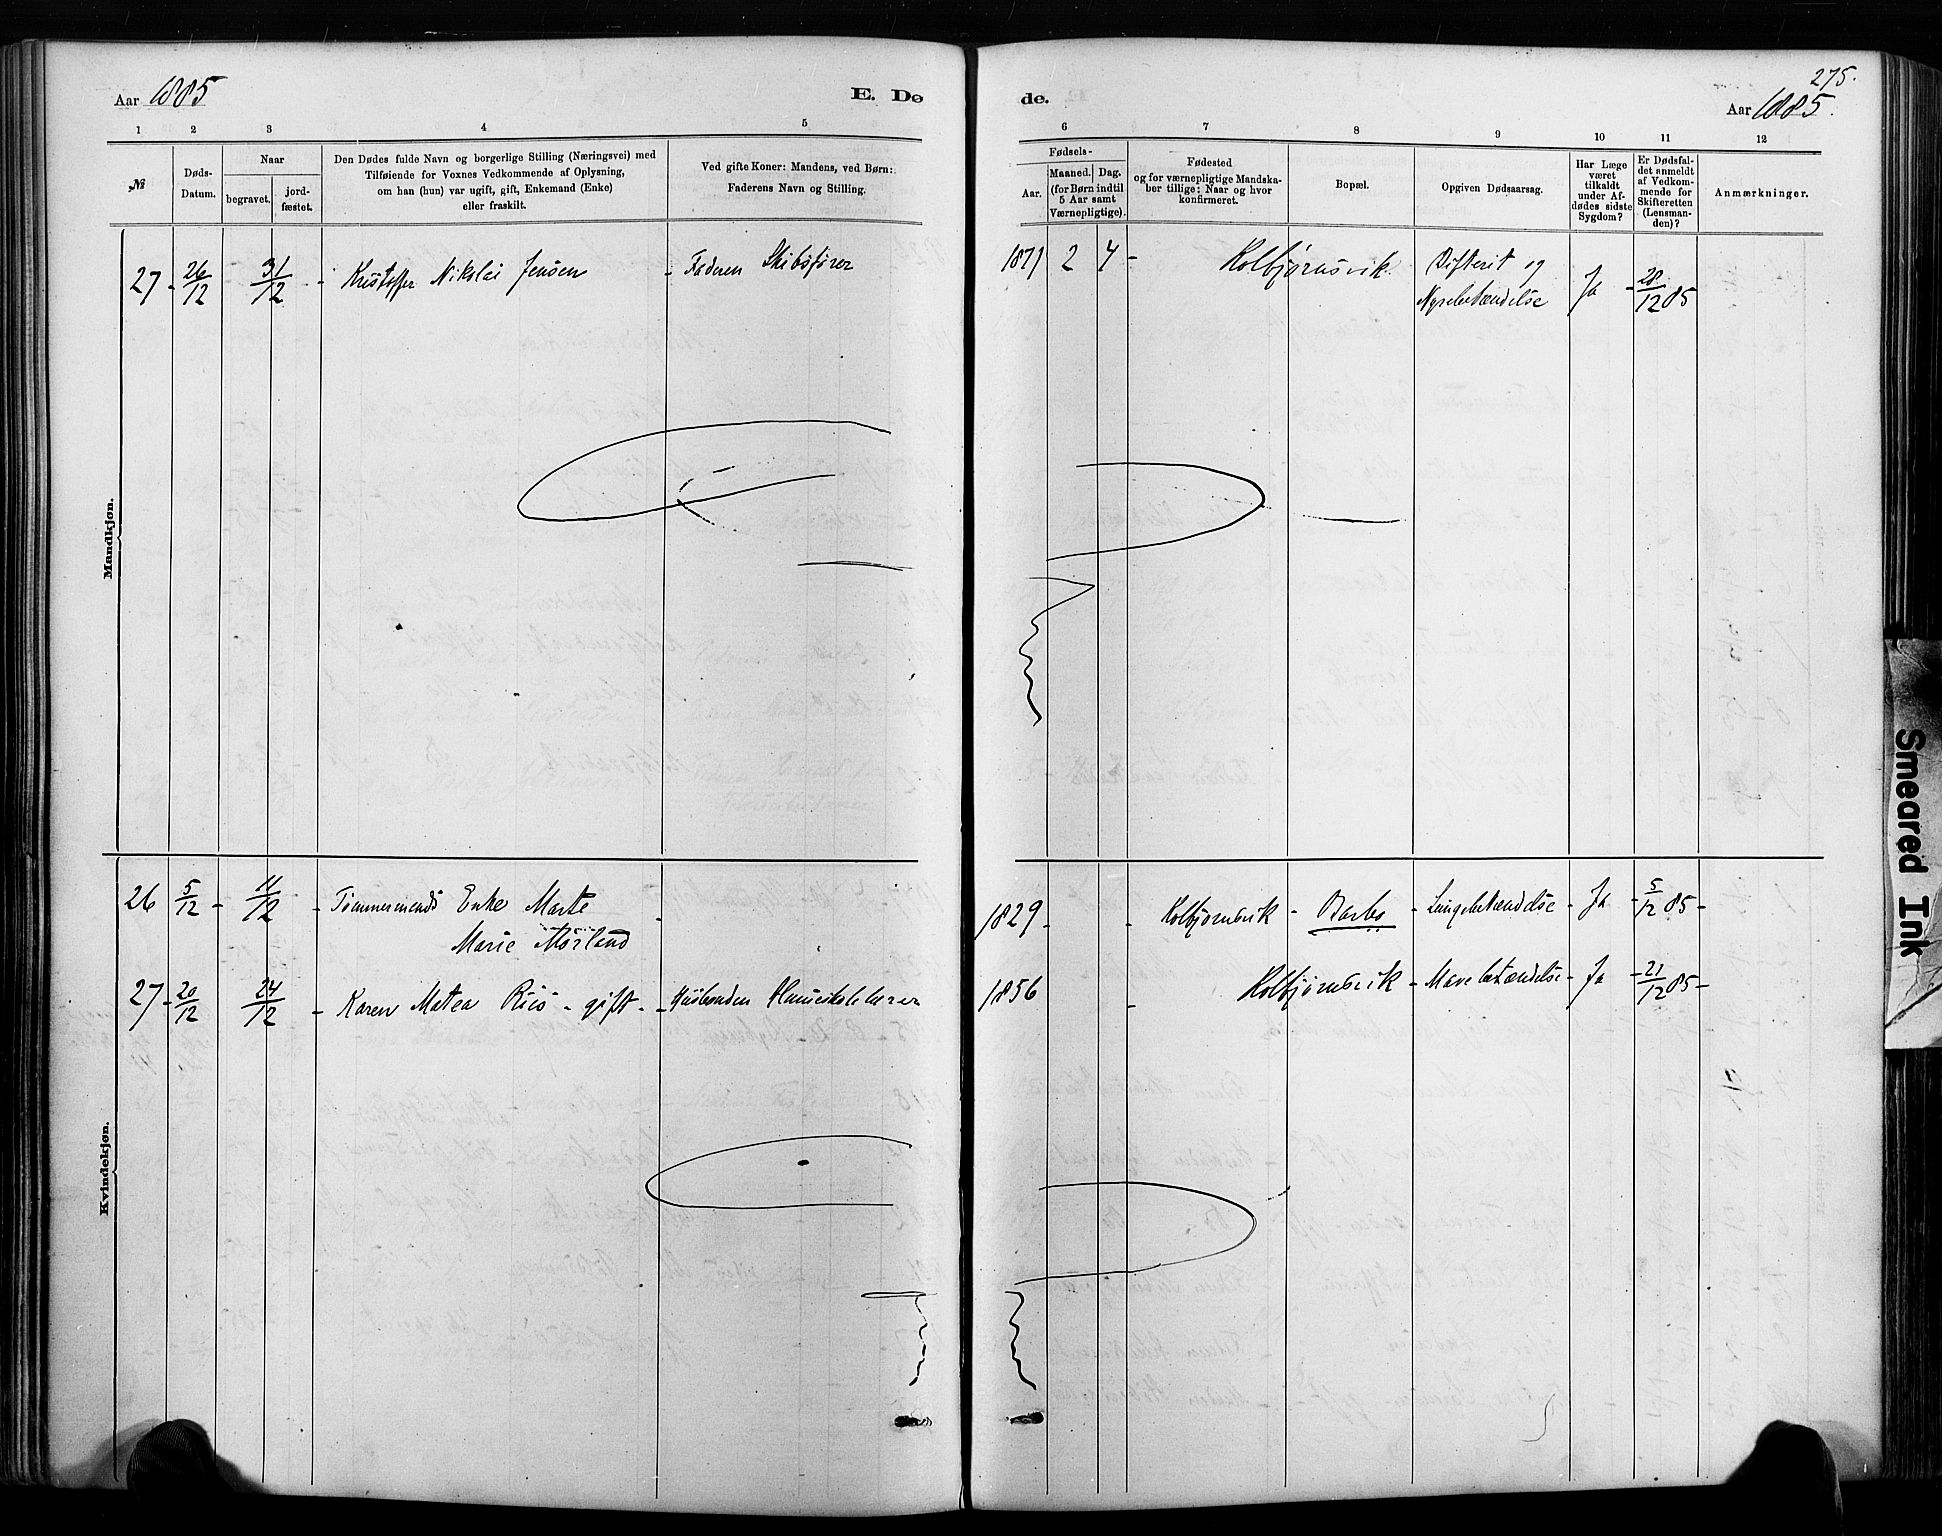 275.
Aar 1885
E. Dø
de.
Aar 1885.
1 2 3 4 5
6 7 8 9 10 11 12
№
Døds-
Datum.
Naar
begravet.
jord-
fæstet.
Den Dødes fulde Navn og borgerlige Stilling (Næringsvei) med
Tilføiende for Voxnes Vedkommende af Oplysning,
om han (hun) var ugift, gift, Enkemand (Enke)
eller fraskilt.
Ved gifte Koner: Mandens, ved Børn:
Faderens Navn og Stilling.
Fødsels-
Aar.
Maaned. Dag.
(for Børn indtil
5 Aar samt
Værnepligtige).
Fødested
og for værnepligtige Mandska-
ber tillige: Naar og hvor
konfirmeret.
Bopæl.
Opgiven Dødsaarsag.
Har Læge
været
tilkaldt
under Af-
dødes sidste
Sygdom?
Er Dødsfal-
det anmeldt
af Vedkom-
mende for
Skifteretten
(Lensman-
den)?
Anmærkninger.
Mandkjøn.
27 - 26/12 31/12 - Kristoffer Nikolai Jensen - Faderen Skibsfører 1871 2 4 - Kolbjørnsvik Difterit og Ja - 28/12 85
Nyrebetændelse
Kvindekjøn.
26 5/12 - 11/12 - Tømmermands Enke Marte - 1829 - - Kolbjørnsvik - Barbo - Lungebetændelse - Ja - 5/12 85 -
Marie Mørland
27 - 20/12 24/12 - Karen Matea Riis - gift - - Husbonden 1856 - Kolbjørnsvik - Mavebetændelse - Ja - 21/12 85 -
Smeared Ink